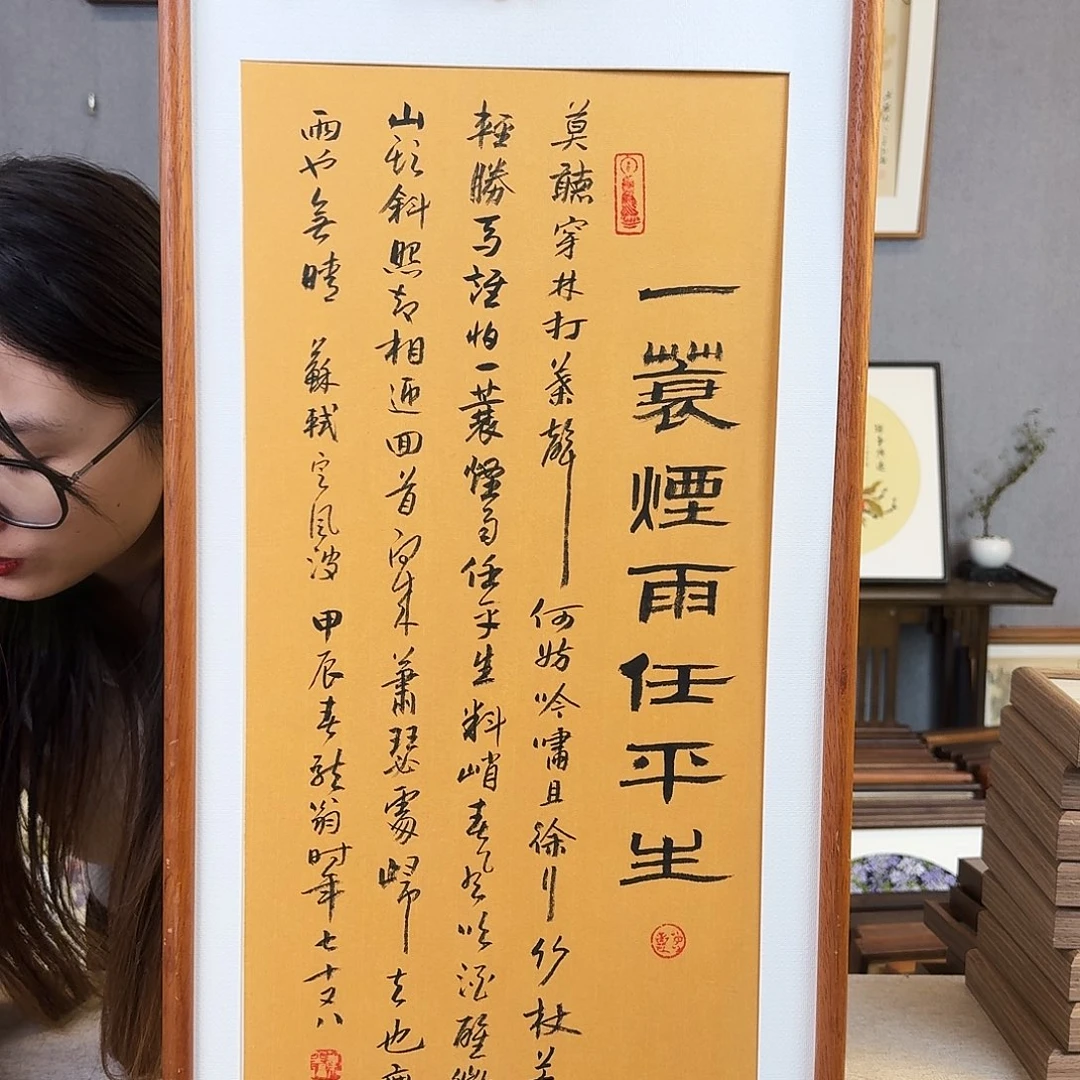 一蓑煙雨任平生
莫聽穿林打葉聲何妨吟嘯且徐行竹杖芒
輕勝馬誰怕一蓑煙雨任平生料峭春風吹酒醒微
山頭斜照却相迎回首向來蕭瑟處歸去也無
雨也無晴 蘇軾定風波 甲辰春 翁时年七十又八